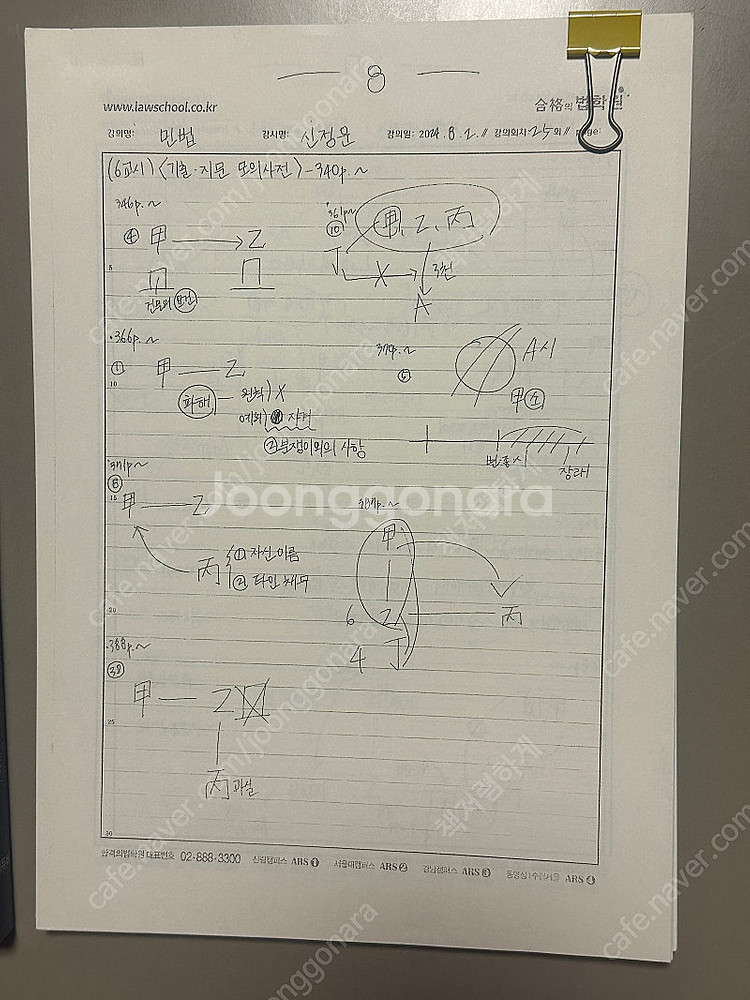 — 8 —
www.lawschool.co.kr
合格의 법학원
강의명: 민법 강사명: 신정운 강의일: 2024. 8. 2. // 강의회차: 25회 // page:
(6교시) <기출·지문 모의사전> -340p.~
346p.~
④ 甲 → 乙
건물의
361p~
⑩ 甲, 乙, 丙
丁 X 3천
A
366p.~
① 甲 — 乙
화해 원칙) X
예외) ① 자격
② 분쟁이외의 사항
370p.~
⑤
A시
甲 소
변종시
장래
5
10
371p~
⑧
15
甲 — 乙
丙 ① 자신이름
② 타인 채무
387p.~
甲
6 乙 丙
4 丁
20
388p.~
38
甲 — 乙
25
丙 과실
30
합격의법학원 대표번호 02-888-3300 신림캠퍼스 ARS ① 서울대캠퍼스 ARS ② 강남캠퍼스 ARS ③ 동영상 | 수험서몰 ARS ④
Joonggonara
cafe.naver.com/joonggonara
책처럼하게